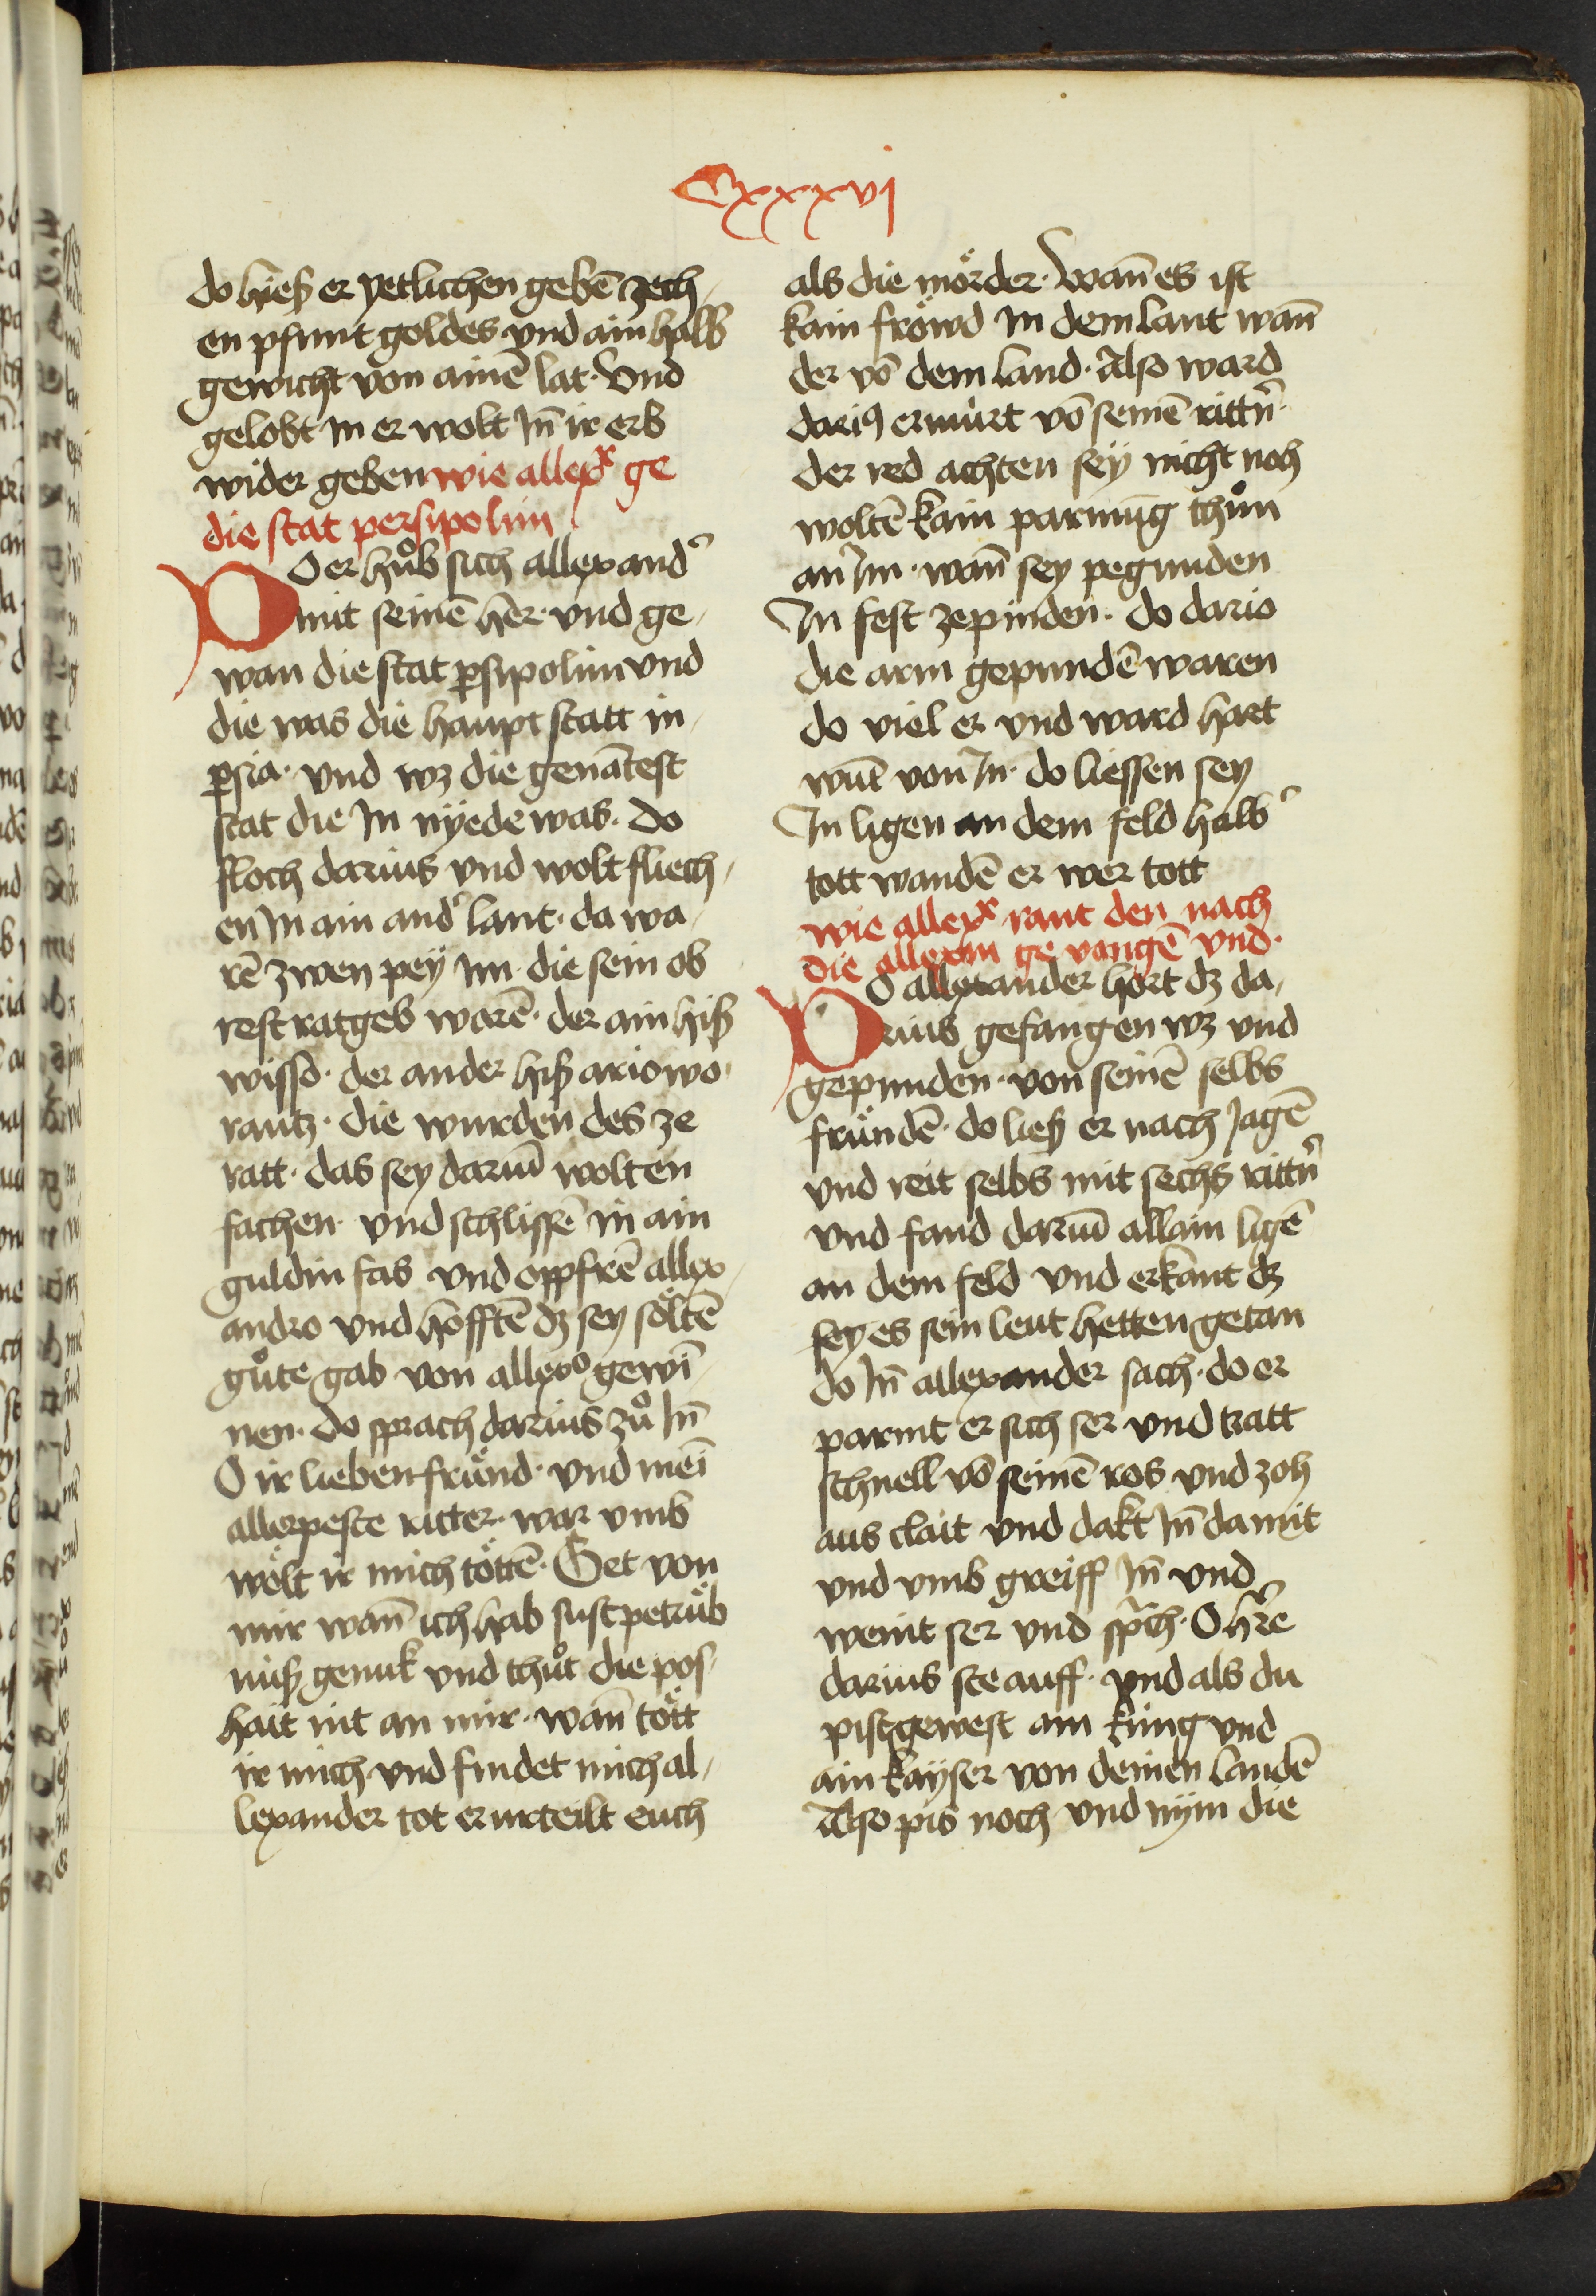 Cxxxvj
do hieß er yetlichen gebē zech,
en pfunt goldes und ain halb
gewicht von ainē lat. Und
gelobt In er wolt In̄ ir erb
wider geben wie allexx ge
die stat persipolim
DO er hůb sich allexandˀ
mit seinē her. und ge,
wan die stat ꝑsipolim und
die was die haupt statt in,
ꝑsia. und wz die genātest
stat die In nÿede was. do
floch darius und wolt fliech,
en In ain andˀ lant. da wa,
rē zwen peÿ im. die sein ob
rest ratgeb warē. der ain hiß
wisso. der ander hiß ariowo,
rantz. die wurden des ze
ratt. das sey dariū wolten
fachen. und schliſſē in ain
guldin fas und oppfrē allex,
andro und hofftē dz sey sőltē
gůte gab von allexo gewī,
nen. do sprach darius zů In̄
O ir lieben fründ. und meī
allerpeste ritter. war umb
wőlt ir mich tőttē. Get von
mir wan̄ ich hab sust petrüb
nuß genuk und thůt die pos,
hait nit an mir. wan̄ tőtt
ir mich. und findet mich al,
lexander tot er urteilt euch
als die mőrder. Wan̄ es ist
kain frőwd In dem lant wan̄
der vō dem land. Also ward
dariꝰ ermürt vō seinē rittn̄.
der red achten sey nicht noch
woltē kain parmūg thůn
an Im. wan̄ sey pegunden
In fest ze pinden. do dario
die arm gepundē waren
do viel er und ward hart
wūt von In. do liessen sey
In ligen an dem feld halbˀ
tott wandē er wer tott
wie allexx rant den nach
die allexm ge vangē und.
DO allexander hort dz da,
rius gefangen wz und
gepunden. von seinē selbs
fründē. do ließ er nach Jagē
und reit selbs mit sechs rittn̄
und fand dariū allain ligē
an dem feld und erkant dz
sey es sein leut hetten getan
do In̄ allexander sach. do er
parmt er sich ser und tratt
schnell vō seinē ros und zoh
aus clait und dakt In̄ da mit
und umb greiff In̄ und
weint ser und sprich. O hr̄e
darius ste auff. und als du
pist gewest ain küng und
ain kayser von deinen landē
Also pis noch und nÿm die